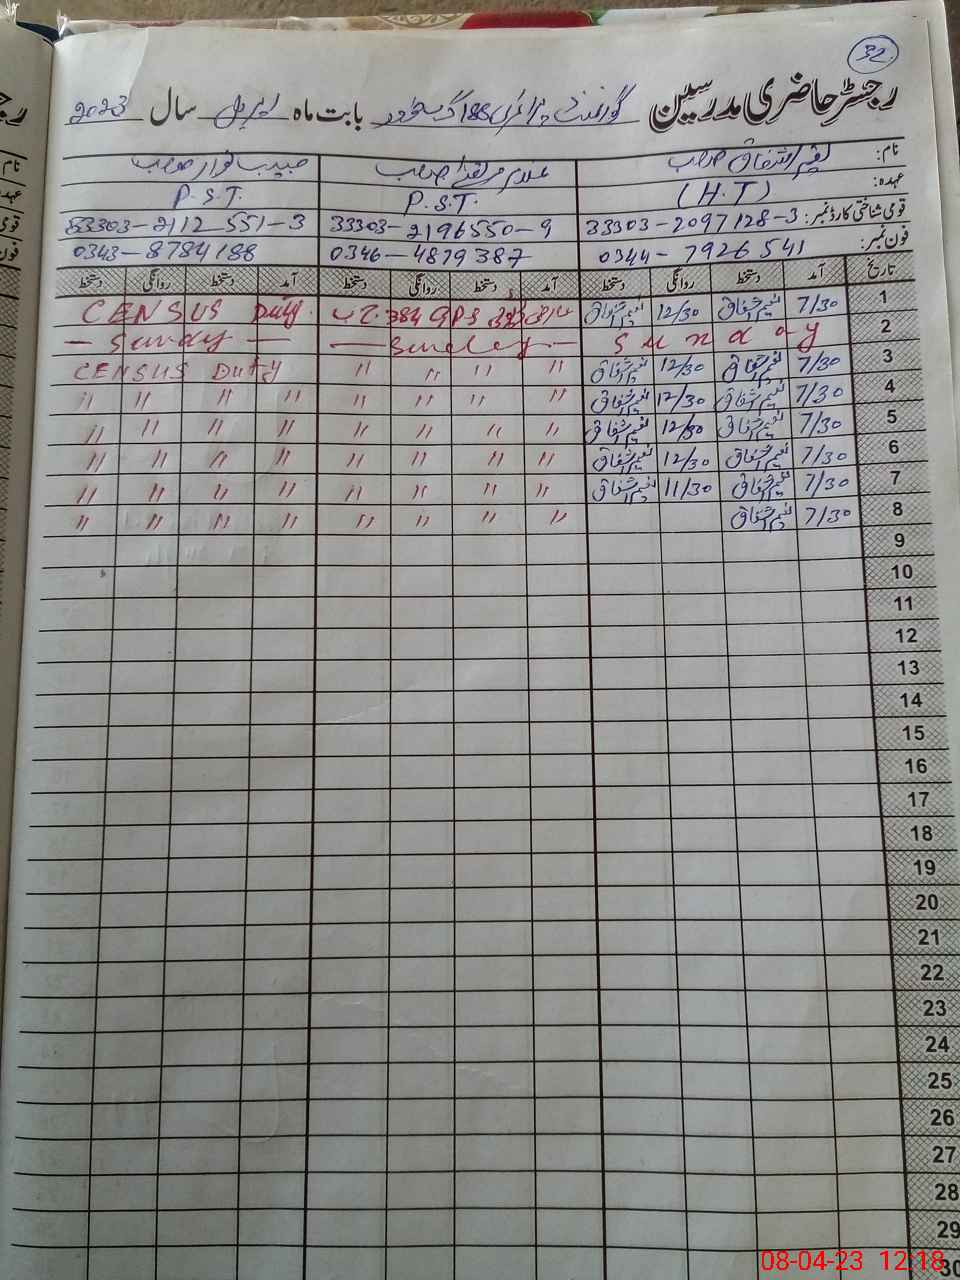 32
رجسٹر حاضری مدرسین گورنمنٹ پرائمری 188 بابت ماہ اپریل سال 2023
نام: نعیم اشفاق صاحب غلام مرتضیٰ صاحب حبیب نواز صاحب
عہدہ: (H.T) P.S.T. P.S.T.
قومی شناختی کارڈ نمبر: 33303-2097128-3 33303-2196550-9 33303-2112551-3
فون نمبر: 0344-7926541 0346-4879387 0343-8784188
تاریخ آمد دستخط روانگی دستخط آمد دستخط روانگی دستخط آمد دستخط روانگی دستخط
1 7/30 نعیم اشفاق 12/30 نعیم اشفاق GPS CENSUS Duty.
2 Sunday — Sunday — — Sunday —
3 7/30 نعیم اشفاق 12/30 نعیم اشفاق 〃 〃 〃 〃 CENSUS Duty
4 7/30 نعیم اشفاق 12/30 نعیم اشفاق 〃 〃 〃 〃 〃 〃 〃 〃
5 7/30 نعیم اشفاق 12/30 نعیم اشفاق 〃 〃 〃 〃 〃 〃 〃 〃
6 7/30 نعیم اشفاق 12/30 نعیم اشفاق 〃 〃 〃 〃 〃 〃 〃 〃
7 7/30 نعیم اشفاق 11/30 نعیم اشفاق 〃 〃 〃 〃 〃 〃 〃 〃
8 7/30 نعیم اشفاق 〃 〃 〃 〃 〃 〃 〃 〃
9
10
11
12
13
14
15
16
17
18
19
20
21
22
23
24
25
26
27
28
29
30
08-04-23 12:18